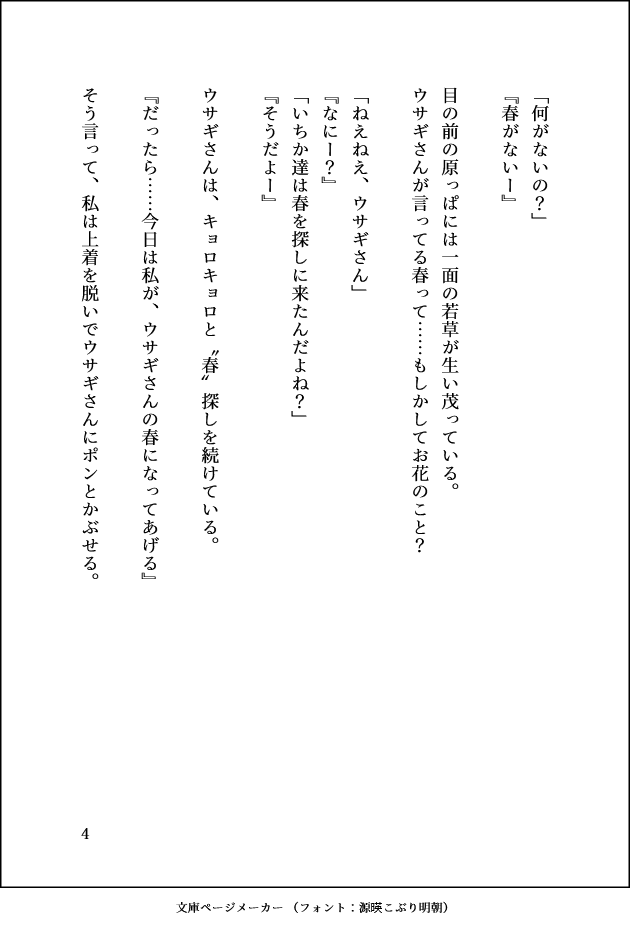 「何がないの？」
『春がないー』
目の前の原っぱには一面の若草が生い茂っている。
ウサギさんが言ってる春って……もしかしてお花のこと？
「ねえねえ、ウサギさん」
『なにー？』
「いちか達は春を探しに来たんだよね？」
『そうだよー』
ウサギさんは、キョロキョロと〝春〟探しを続けている。
『だったら……今日は私が、ウサギさんの春になってあげる』
そう言って、私は上着を脱いでウサギさんにポンとかぶせる。
4
文庫ページメーカー（フォント：源暎こぶり明朝）